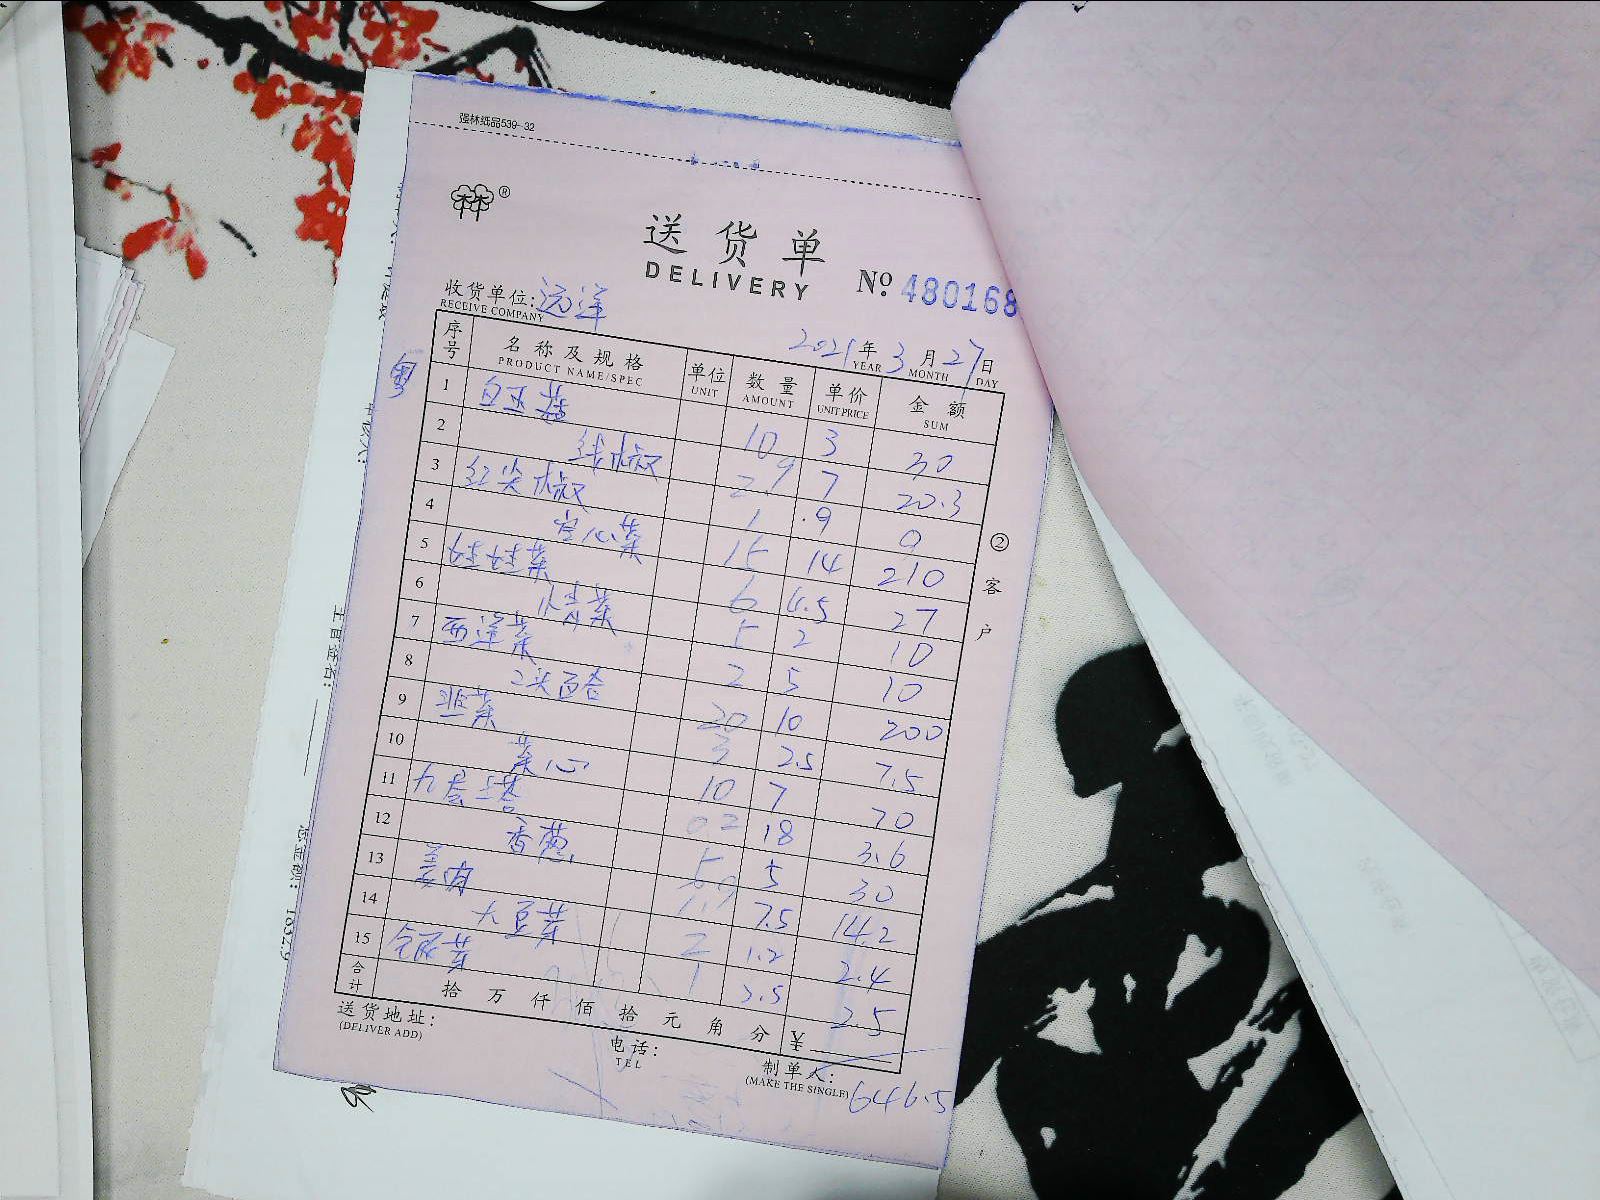 强林纸品539-32
送货单
DELIVERY
№ 480168
收货单位: 远洋
RECEIVE COMPANY
2021年3月27日
YEAR MONTH DAY
粤
序号 名称及规格 单位 数量 单价 金额
PRODUCT NAME/SPEC UNIT AMOUNT UNIT PRICE SUM
1 白玉菇 10 3 30
2 线椒 2.9 7 20.3
3 红尖椒 1 9 9
4 空心菜 15 14 210
5 娃娃菜 6 4.5 27
6 小青菜 5 2 10
7 西洋菜 2 5 10
8 二头百合 20 10 200
9 韭菜 3 2.5 7.5
10 菜心 10 7 70
11 九层塔 0.2 18 3.6
12 香葱 5 30
13 姜肉 1.9 7.5 14.2
14 大豆芽 2 1.2 2.4
15 1 2.5
合计 拾万仟佰拾元角分 ¥
646.5
送货地址:
(DELIVER ADD)
电话:
TEL
制单人:
(MAKE THE SINGLE)
②客户
主管签名:
总金额: 1832.9